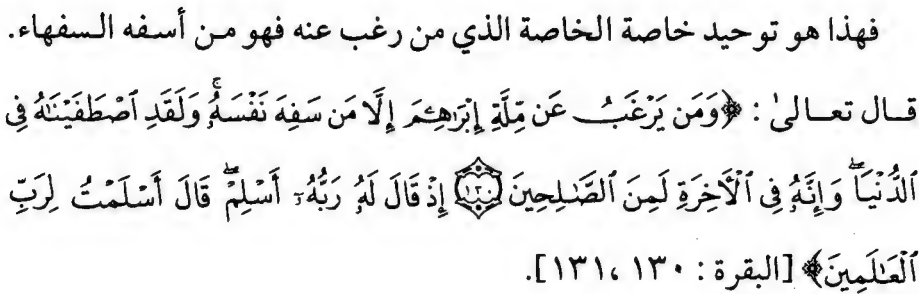 فهذا هو توحيد خاصة الخاصة الذي من رغب عنه فهو من أسفه السفهاء.
قال تعالىٰ : ﴿وَمَن يَرْغَبُ عَن مِّلَّةِ إِبْرَٰهِـۧمَ إِلَّا مَن سَفِهَ نَفْسَهُۥۚ وَلَقَدِ ٱصْطَفَيْنَـٰهُ فِى
ٱلدُّنْيَاۖ وَإِنَّهُۥ فِى ٱلْأَخِرَةِ لَمِنَ ٱلصَّـٰلِحِينَ ١٣٠ إِذْ قَالَ لَهُۥ رَبُّهُۥٓ أَسْلِمْۖ قَالَ أَسْلَمْتُ لِرَبِّ
ٱلْعَـٰلَمِينَ﴾ [البقرة : ١٣٠، ١٣١].